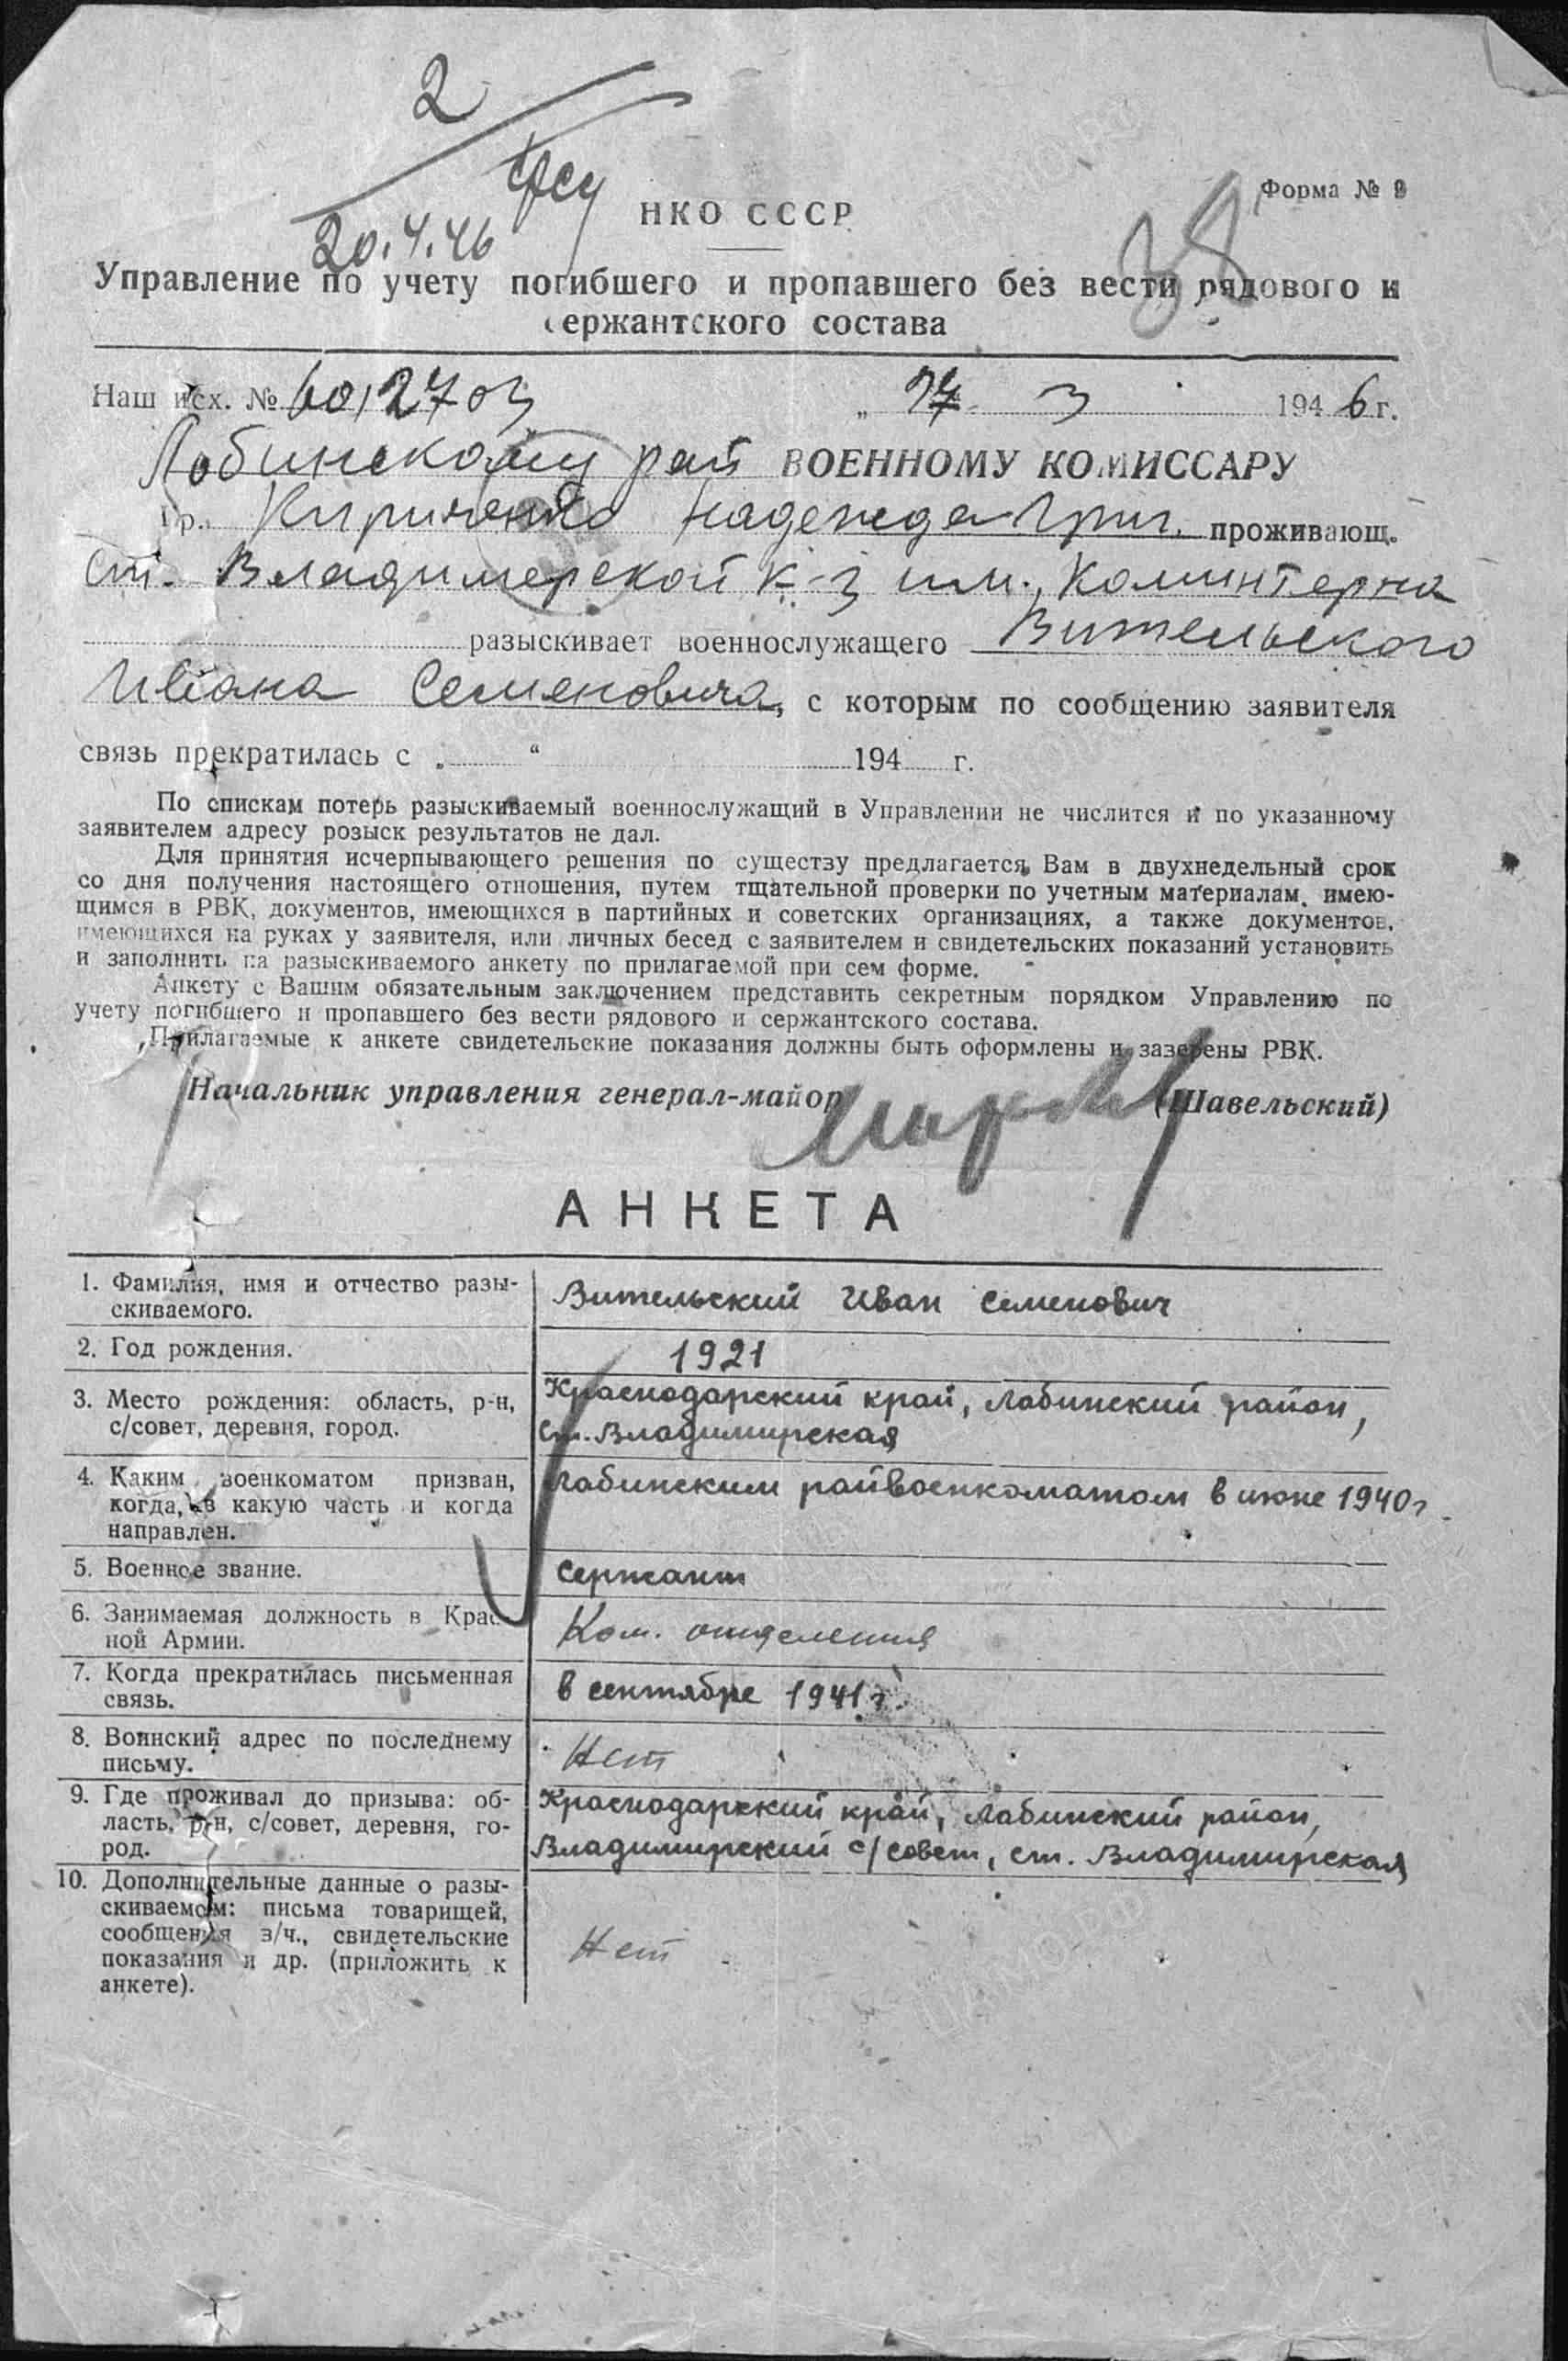 2
20.4.46
38
Форма № 9
НКО СССР
Управление по учету погибшего и пропавшего без вести рядового и
сержантского состава
Наш исх. № 6012703 „ 17 3 1946 г.
Лабинскому рай ВОЕННОМУ КОМИССАРУ
Гр. Кириченко Надежда Григ. проживающ.
ст. Владимерской к-з им. Коминтерна
разыскивает военнослужащего Вительского
Ивана Семеновича, с которым по сообщению заявителя
связь прекратилась с „ “ 194 г.
По спискам потерь разыскиваемый военнослужащий в Управлении не числится и по указанному
заявителем адресу розыск результатов не дал.
Для принятия исчерпывающего решения по существу предлагается Вам в двухнедельный срок
со дня получения настоящего отношения, путем тщательной проверки по учетным материалам, имею-
щимся в РВК, документов, имеющихся в партийных и советских организациях, а также документов,
имеющихся на руках у заявителя, или личных бесед с заявителем и свидетельских показаний установить
и заполнить на разыскиваемого анкету по прилагаемой при сем форме.
Анкету с Вашим обязательным заключением представить секретным порядком Управлению по
учету погибшего и пропавшего без вести рядового и сержантского состава.
Прилагаемые к анкете свидетельские показания должны быть оформлены и заверены РВК.
Начальник управления генерал-майор (Шавельский)
АНКЕТА
1. Фамилия, имя и отчество разы-
скиваемого.
Вительский Иван Семенович
2. Год рождения.
1921
3. Место рождения: область, р-н,
с/совет, деревня, город.
Краснодарский край, Лабинский район,
ст. Владимирская
4. Каким военкоматом призван,
когда, в какую часть и когда
направлен.
Лабинским райвоенкоматом в июне 1940г.
5. Военное звание.
Сержант
6. Занимаемая должность в Крас-
ной Армии.
Ком. отделения
7. Когда прекратилась письменная
связь.
в сентябре 1941 г.
8. Воинский адрес по последнему
письму.
Нет
9. Где проживал до призыва: об-
ласть, р-н, с/совет, деревня, го-
род.
Краснодарский край, Лабинский район,
Владимирский с/совет, ст. Владимирская
10. Дополнительные данные о разы-
скиваемом: письма товарищей,
сообщения з/ч., свидетельские
показания и др. (приложить к
анкете).
Нет